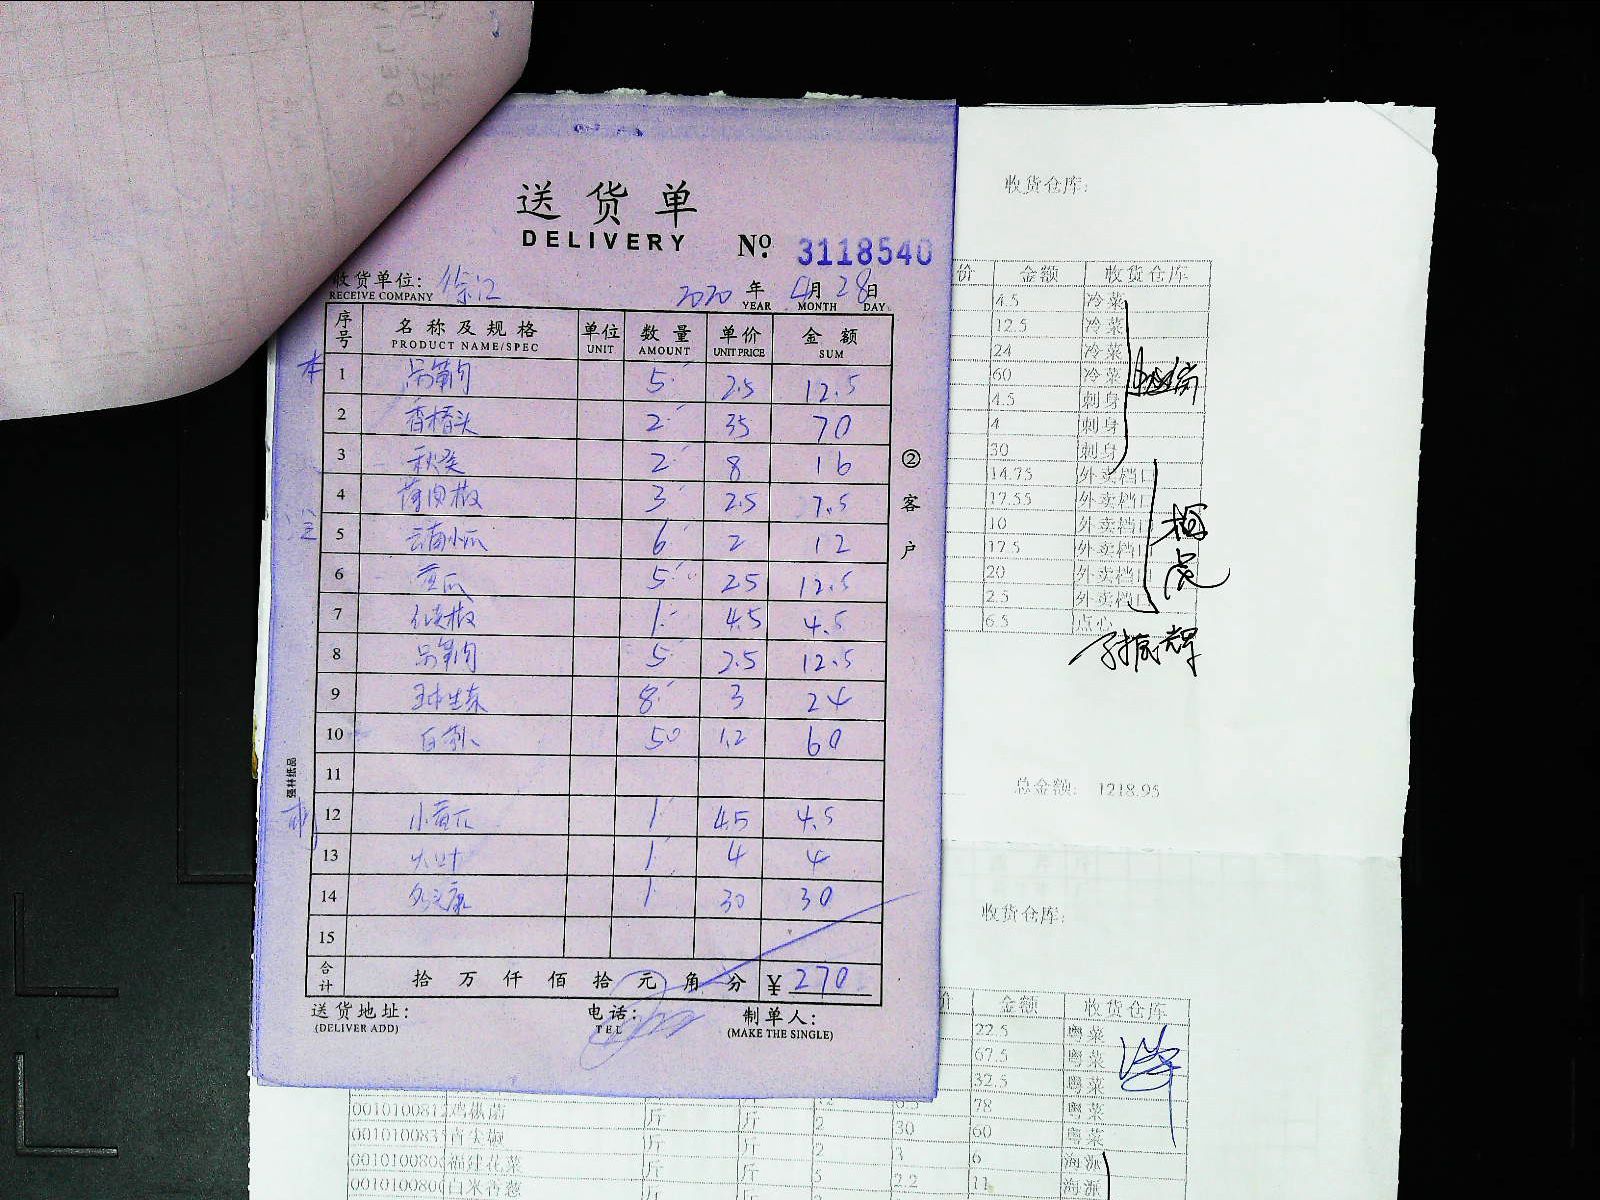 送货单
DELIVERY
№: 3118540
收货单位: 徐江
RECEIVE COMPANY
2020 年 4月 28日
YEAR MONTH DAY
序号 名称及规格 单位 数量 单价 金额
PRODUCT NAME/SPEC UNIT AMOUNT UNIT PRICE SUM
1 5 2.5 12.5
2 香椿头 2 35 70
3 秋葵 2 8 16
4 3 2.5 7.5
5 云南小瓜 6 2 12
6 黄瓜 5 2.5 12.5
7 1 4.5 4.5
8 5 2.5 12.5
9 球生菜 8 3 24
10 50 1.2 60
11
12 小黄瓜 1 4.5 4.5
13 大叶 1 4 4
14 1 30 30
15
合计 拾 万 仟 佰 拾 元 角 分 ¥ 270
送货地址: 电话: 制单人:
(DELIVER ADD) TEL (MAKE THE SINGLE)
②客户
强林纸品
收货仓库:
价 金额 收货仓库
4.5 冷菜
12.5 冷菜
24 冷菜
60 冷菜
4.5 刺身
4 刺身
30 刺身
14.75 外卖档口
17.55 外卖档口
10 外卖档口
17.5 外卖档口
20 外卖档口
2.5 外卖档口
6.5 点心
孙振辉
总金额: 1218.95
收货仓库:
价 金额 收货仓库
22.5 粤菜
67.5 粤菜
32.5 粤菜
78 粤菜
青尖椒 斤 斤 2 30 60 粤菜
福建花菜 斤 斤 2 3 6 海派
白米香葱 斤 斤 5 2.2 11 海派